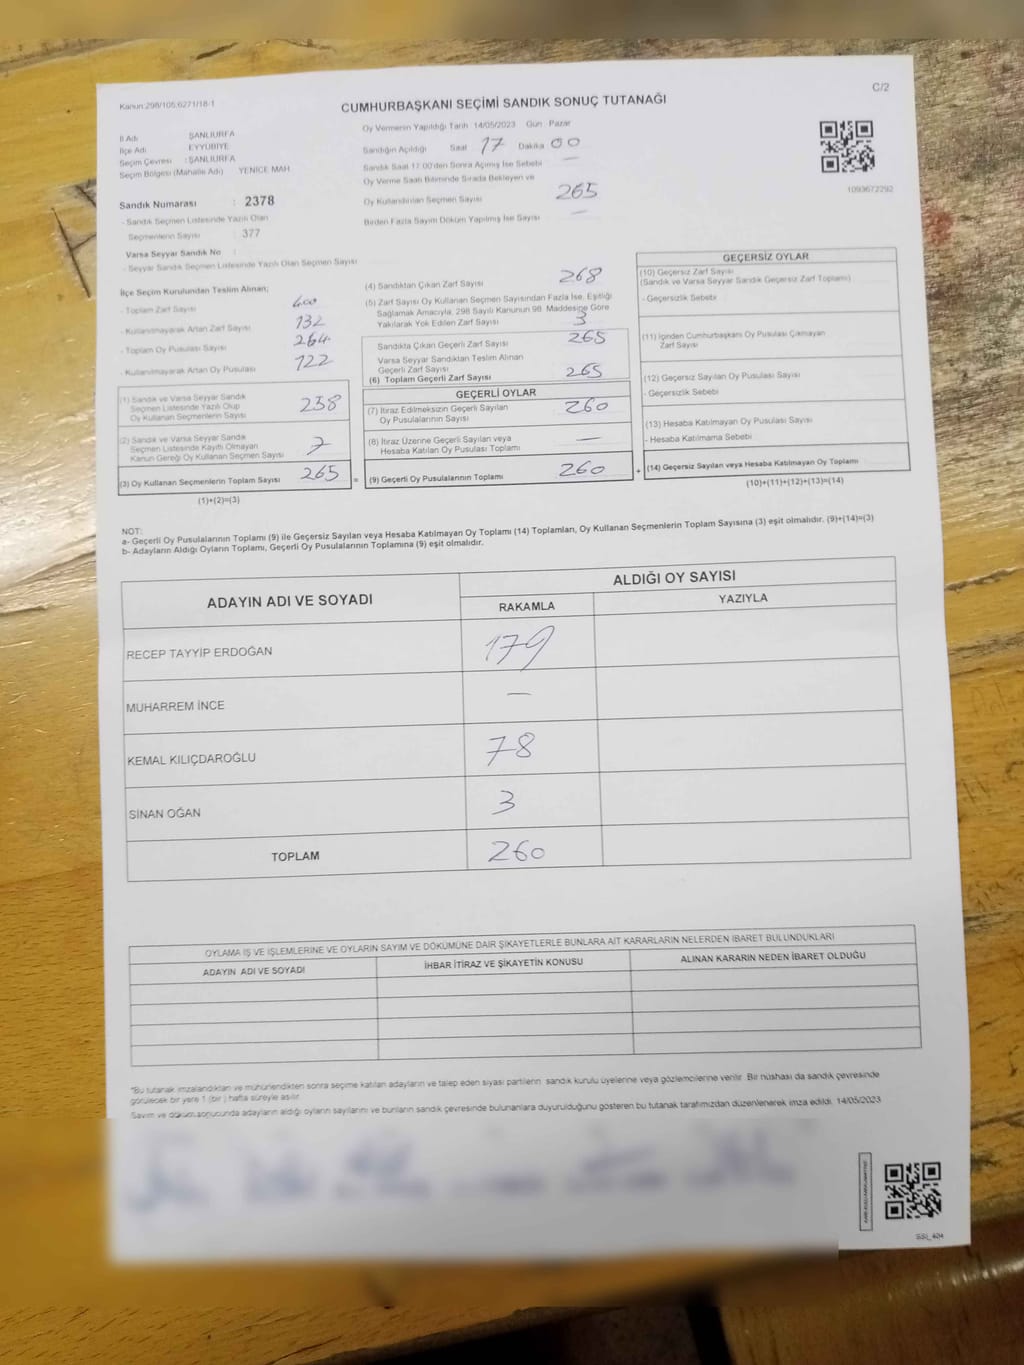 Kanun:298/105;6271/18-1
C/2
CUMHURBAŞKANI SEÇİMİ SANDIK SONUÇ TUTANAĞI
İl Adı ŞANLIURFA
İlçe Adı EYYÜBİYE
Seçim Çevresi : ŞANLIURFA
Seçim Bölgesi (Mahalle Adı) YENİCE MAH
Sandık Numarası : 2378
- Sandık Seçmen Listesinde Yazılı Olan
Seçmenlerin Sayısı : 377
Varsa Seyyar Sandık No :
- Seyyar Sandık Seçmen Listesinde Yazılı Olan Seçmen Sayısı
Oy Vermenin Yapıldığı Tarih 14/05/2023 Gün : Pazar
Sandığın Açıldığı Saat 17 Dakika 00
Sandık Saat 17:00'den Sonra Açılmış İse Sebebi —
Oy Verme Saati Bitiminde Sırada Bekleyen ve
Oy Kullandırılan Seçmen Sayısı 265
Birden Fazla Sayım Döküm Yapılmış İse Sayısı —
1093672292
İlçe Seçim Kurulundan Teslim Alınan;
- Toplam Zarf Sayısı 400
- Kullanılmayarak Artan Zarf Sayısı 132
- Toplam Oy Pusulası Sayısı 264
- Kullanılmayarak Artan Oy Pusulası 122
(1) Sandık ve Varsa Seyyar Sandık
Seçmen Listesinde Yazılı Olup
Oy Kullanan Seçmenlerin Sayısı 258
(2) Sandık ve Varsa Seyyar Sandık
Seçmen Listesinde Kayıtlı Olmayan
Kanun Gereği Oy Kullanan Seçmen Sayısı 7
(3) Oy Kullanan Seçmenlerin Toplam Sayısı 265
(1)+(2)=(3)
(4) Sandıktan Çıkan Zarf Sayısı 268
(5) Zarf Sayısı Oy Kullanan Seçmen Sayısından Fazla İse, Eşitliği
Sağlamak Amacıyla, 298 Sayılı Kanunun 98. Maddesine Göre
Yakılarak Yok Edilen Zarf Sayısı 3
Sandıkta Çıkan Geçerli Zarf Sayısı 265
Varsa Seyyar Sandıktan Teslim Alınan
Geçerli Zarf Sayısı
(6) Toplam Geçerli Zarf Sayısı 265
GEÇERLİ OYLAR
(7) İtiraz Edilmeksizin Geçerli Sayılan
Oy Pusulalarının Sayısı 260
(8) İtiraz Üzerine Geçerli Sayılan veya
Hesaba Katılan Oy Pusulası Toplamı —
= (9) Geçerli Oy Pusulalarının Toplamı 260 +
GEÇERSİZ OYLAR
(10) Geçersiz Zarf Sayısı
(Sandık ve Varsa Seyyar Sandık Geçersiz Zarf Toplamı)
- Geçersizlik Sebebi
(11) İçinden Cumhurbaşkanı Oy Pusulası Çıkmayan
Zarf Sayısı
(12) Geçersiz Sayılan Oy Pusulası Sayısı
- Geçersizlik Sebebi
(13) Hesaba Katılmayan Oy Pusulası Sayısı
- Hesaba Katılmama Sebebi
(14) Geçersiz Sayılan veya Hesaba Katılmayan Oy Toplamı
(10)+(11)+(12)+(13)=(14)
NOT:
a- Geçerli Oy Pusulalarının Toplamı (9) ile Geçersiz Sayılan veya Hesaba Katılmayan Oy Toplamı (14) Toplamları, Oy Kullanan Seçmenlerin Toplam Sayısına (3) eşit olmalıdır. (9)+(14)=(3)
b- Adayların Aldığı Oyların Toplamı, Geçerli Oy Pusulalarının Toplamına (9) eşit olmalıdır.
ADAYIN ADI VE SOYADI
ALDIĞI OY SAYISI
RAKAMLA YAZIYLA
RECEP TAYYİP ERDOĞAN 179
MUHARREM İNCE —
KEMAL KILIÇDAROĞLU 78
SİNAN OĞAN 3
TOPLAM 260
OYLAMA İŞ VE İŞLEMLERİNE VE OYLARIN SAYIM VE DÖKÜMÜNE DAİR ŞİKAYETLERLE BUNLARA AİT KARARLARIN NELERDEN İBARET BULUNDUKLARI
ADAYIN ADI VE SOYADI İHBAR İTİRAZ VE ŞİKAYETİN KONUSU ALINAN KARARIN NEDEN İBARET OLDUĞU
*Bu tutanak imzalandıktan ve mühürlendikten sonra seçime katılan adayların ve talep eden siyasi partilerin sandık kurulu üyelerine veya gözlemcilerine verilir. Bir nüshası da sandık çevresinde
görülecek bir yere 1 (bir) hafta süreyle asılır.
Sayım ve döküm sonucunda adayların aldığı oyların sayılarını ve bunların sandık çevresinde bulunanlara duyurulduğunu gösteren bu tutanak tarafımızdan düzenlenerek imza edildi. 14/05/2023
SSI_404